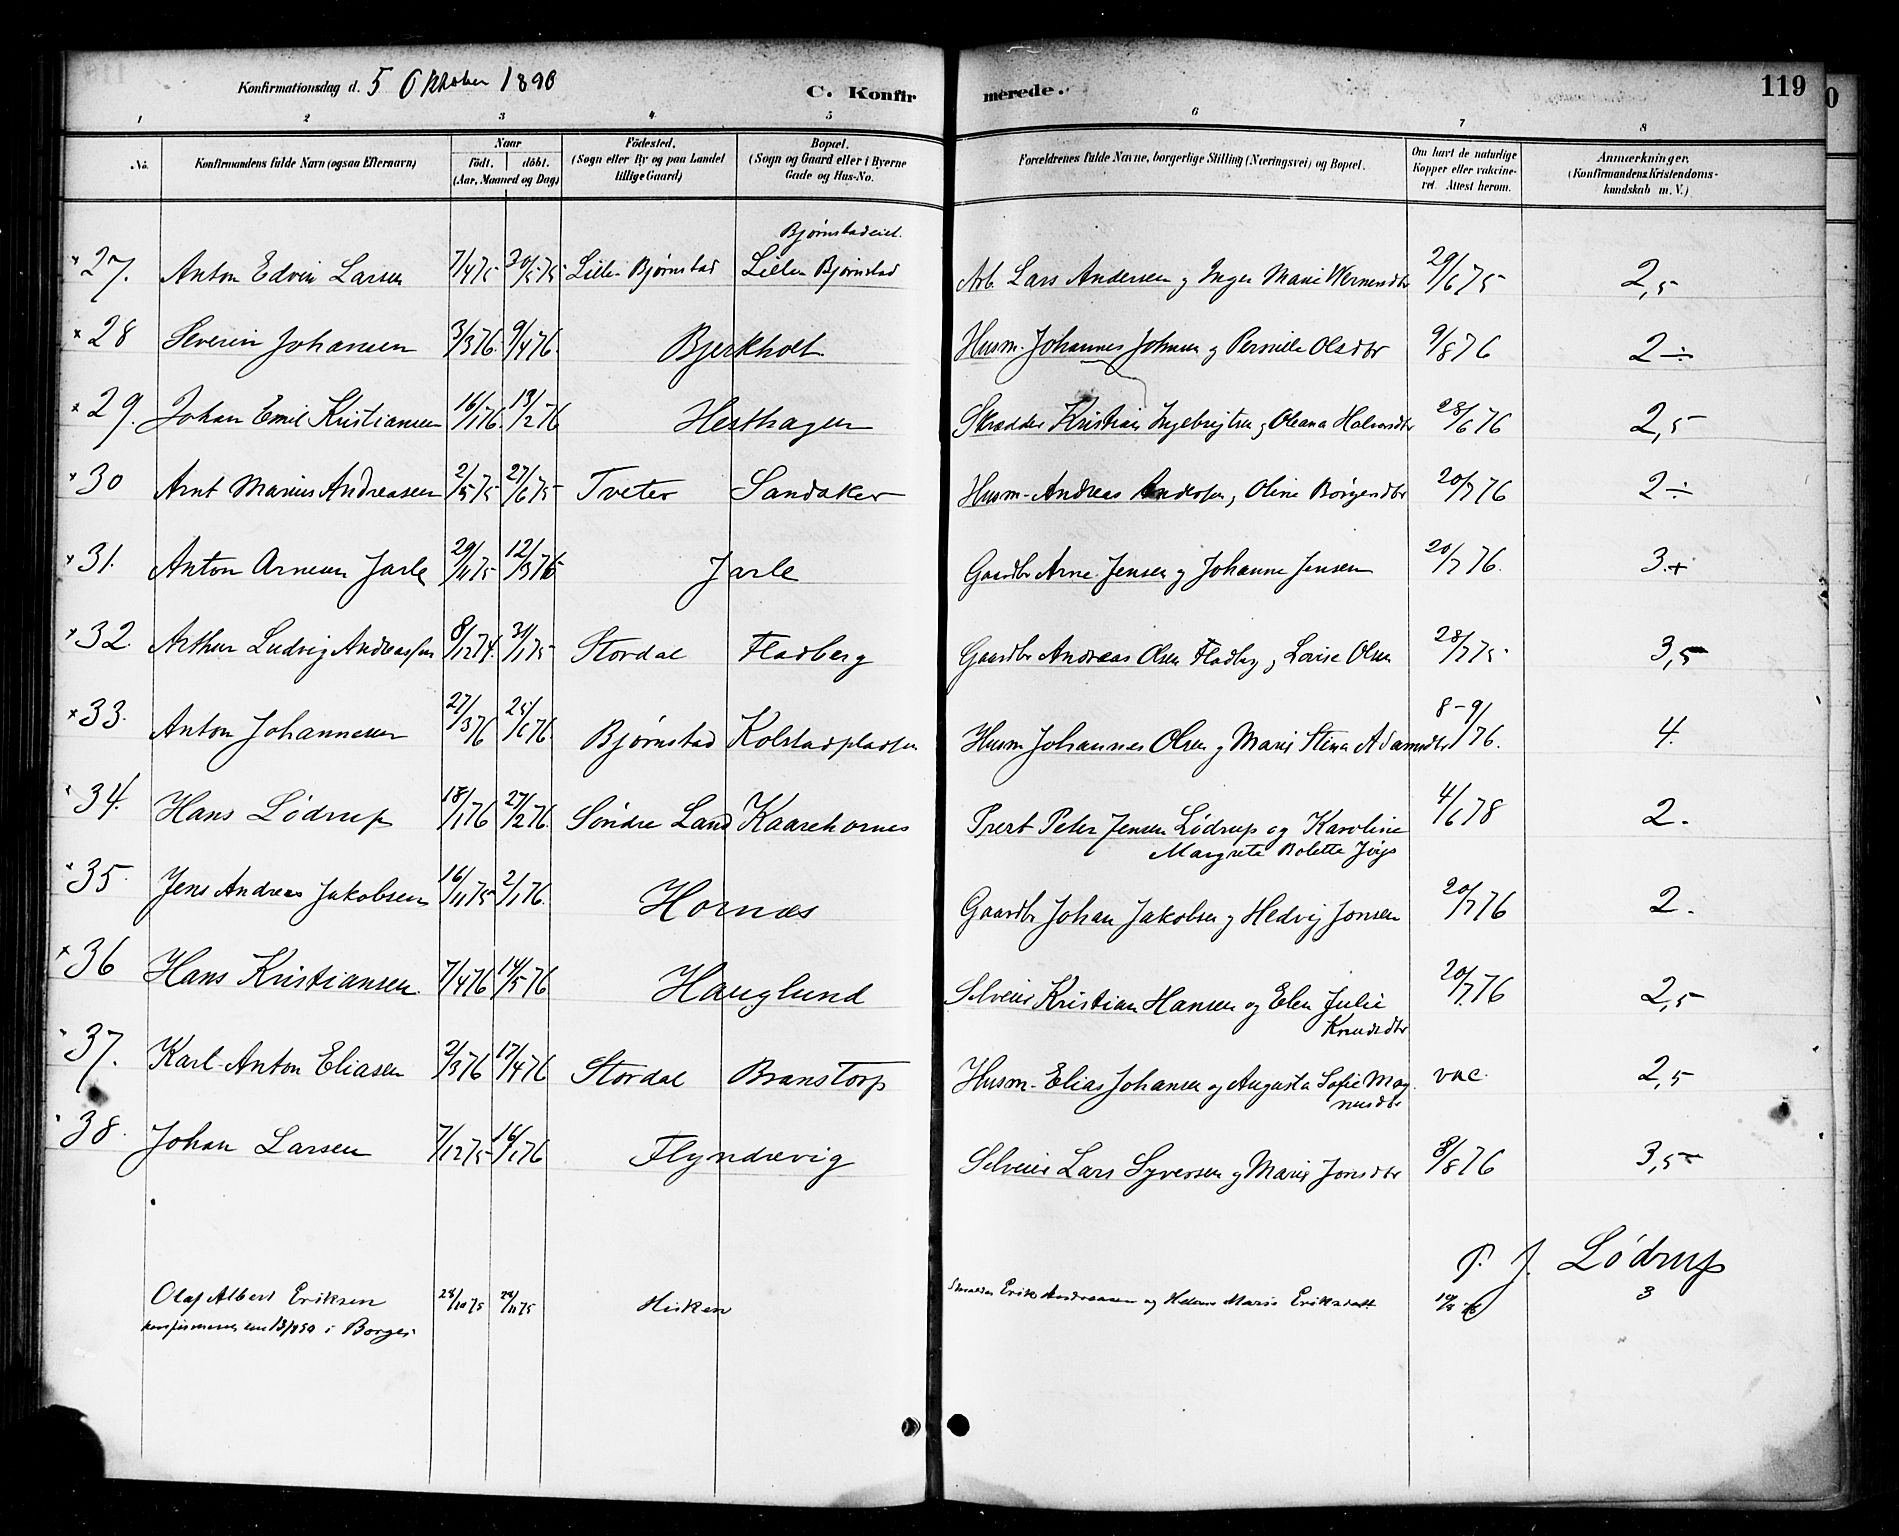 Konfirmationsdag d. 5 Oktober 1890 C. Konfirmerede. 119
1 2 3 4 5 6 7 8
No. Konfirmandens fulde Navn (ogsaa Efternavn) Naar født. døbt. (Aar, Maaned og Dag) Fødested. (Sogn eller By og paa Landet tillige Gaard) Bopæl. (Sogn og Gaard eller i Byerne Gade og Hus-No. Forældrenes fulde Navne, borgerlige Stilling (Næringsvei) og Bopæl. Om havt de naturlige Kopper eller vakcineret. Attest herom. Anmærkninger. (Konfirmandens Kristendomskundskab m. V.)
Bjørnstadeiet.
27. Anton Edvin Larsen 7/4 75 30/5 75 Lille Bjørnstad Lille Bjørnstad Arb. Lars Andersen og Inger Marie Wernersdtr 29/6 75 2,5
28 Severin Johansen 3/3 76. 9/4 76. Bjerkholt Husm. Johannes Johnsen og Pernille Olsdtr 9/8 76 2 ÷
29. Johan Emil Kristiansen 16/1 76. 13/2 76 Hesthagen Skrædder Kristian Ingebrigtsen og Oleana Halvorsdtr 28/6 76 2,5
30 Arnt Marius Andreasen 2/5 75 27/6 75 Tveter Sandaker Husm. Andreas Andersen, Oline Børgesdtr 20/7 76 2 ÷
31. Anton Arnesen Jarle 29/11 75 12/3 76 Jarle Gaardbr Arne Jensen og Johanne Jensen 20/7 76. 3.+
32 Arthur Ludvig Andreassen 8/12 74. 31/1 75 Stordal Fladberg Gaardbr Andreas Olsen Fladberg og Lovise Olsen 28/7 75 3,5
33. Anton Johannesen 27/3 76 25/6 76. Bjørnstad Kolstadpladsen Husm Johannes Olsen og Marie Stina Adamsdtr 8-9/ 76. 4.
34. Hans Lødrup 18/1 76 27/2 76. Søndre Land Kaarehornes Prest Peter Jensen Lødrup og Karoline
Margrete Bolette 4/6 78 2.
35 Jens Andreas Jakobsen 16/11 75 2/1 76. Hornæs Gaardbr Johan Jakobsen og Hedvig Jonsen 20/7 76 2.
36 Hans Kristiansen 7/4 76 14/5 76 Hauglund Selveier Kristian Hansen og Elen Julie
Knudsdtr 20/7 76 2,5
37. Karl Anton Eliasen 2/3 76 17/4 76 Stordal Branstorp Husm. Elias Johansen og Augusta Sofie Mag
nusdtr vac. 2,5
38. Johan Larsen 7/12 75 16/1 76 Flyndrevig Selveier Lars Syversen og Marie Jonsdtr 8/8 76 3,5
P. J. Lødrup
Olaf Albert Eriksen 28/10 75 28/11 75 Hisken Erik Andreassen og Helene Marie Eriksdatt 3
i Borge